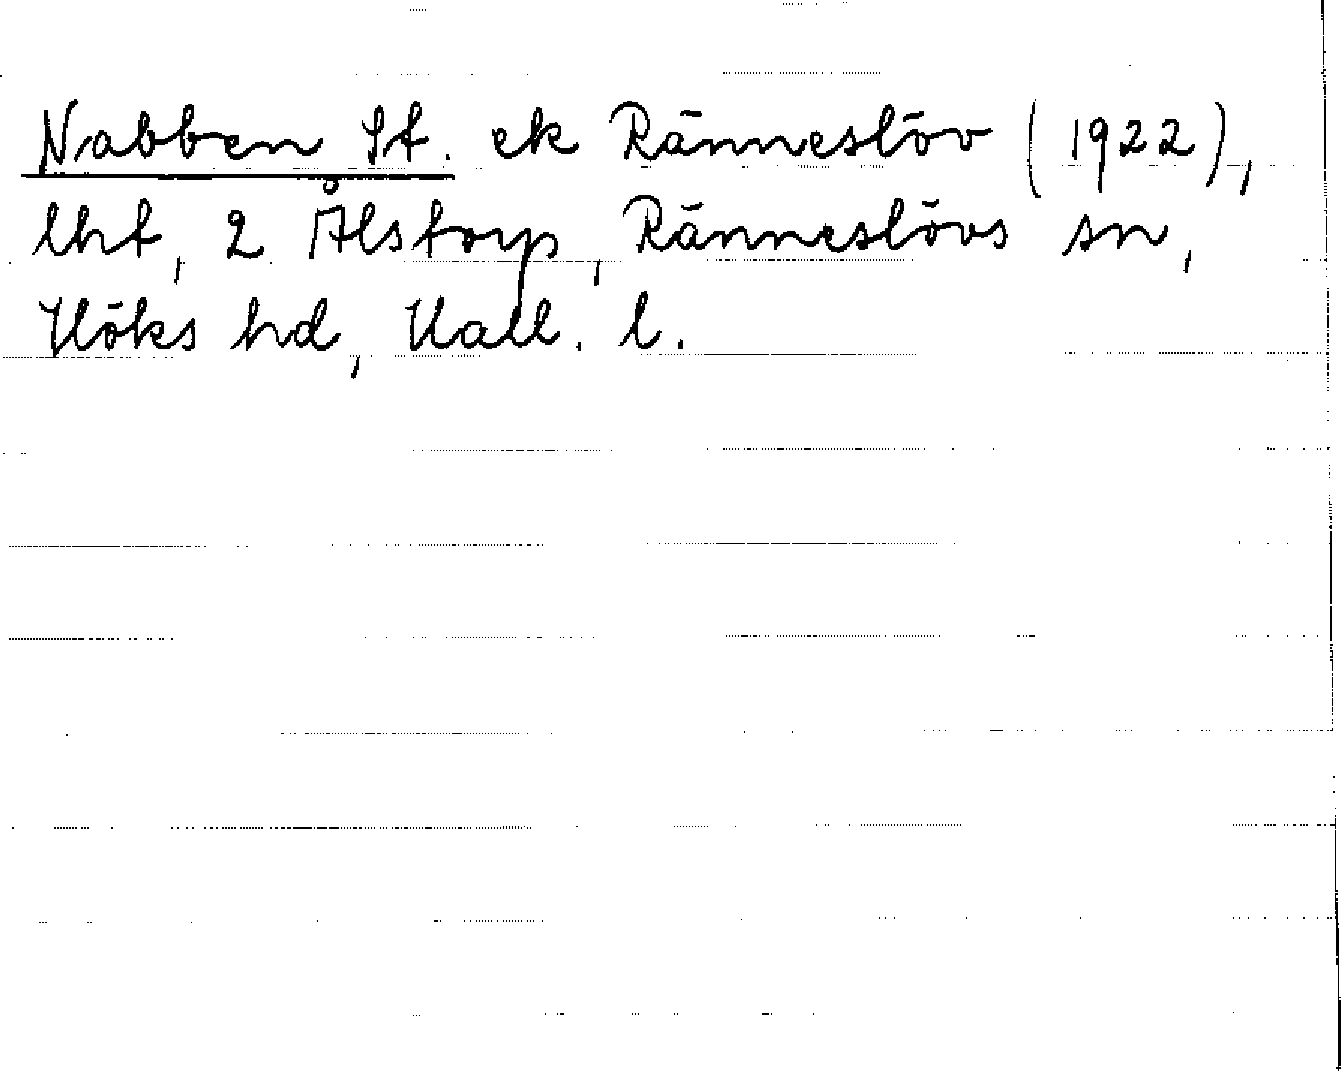 Nabben St. ek Ränneslöv (1922),
lht, 2 Ålstorp, Ränneslövs sn,
Höks hd, Hall. l.